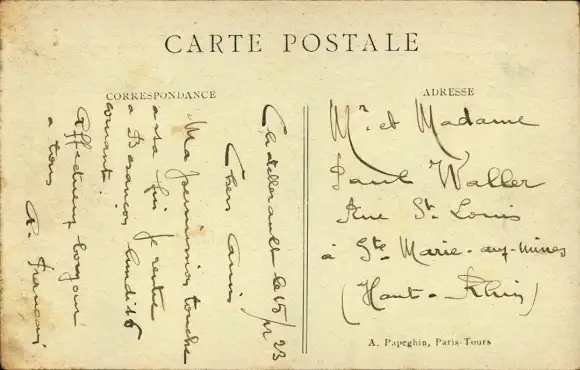 CARTE POSTALE
CORRESPONDANCE
Chatellerault le 15/12 23
Chers Amis
Ma permission touche
a sa fin je rentre
a Besançon lundi 16
courant.
Affectueux bonjour
a tous
A. François
ADRESSE
Mr. et Madame
Paul Waller
Rue St. Louis
à Ste Marie-aux-mines
(Haut-Rhin)
A. Papeghin, Paris-Tours